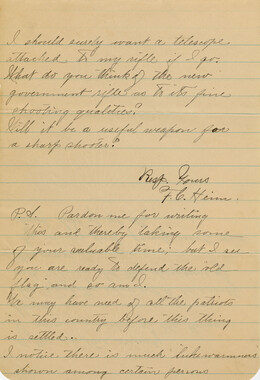 I should surely want a telescope
attached to my rifle if I go.
What do you think of the new
government rifle as to its fine
shooting qualities?
Will it be a useful weapon for
a sharp shooter?
Resp. Yours
F. C. Heim
P.S. Pardon me for writing
this and thereby taking some
of your valuable time; but I see
you are ready to defend the "old
flag" and so am I.
We may have need of all the patriots
in this country before this thing
is settled.
I notice there is much lukewarmness
shown among certain persons